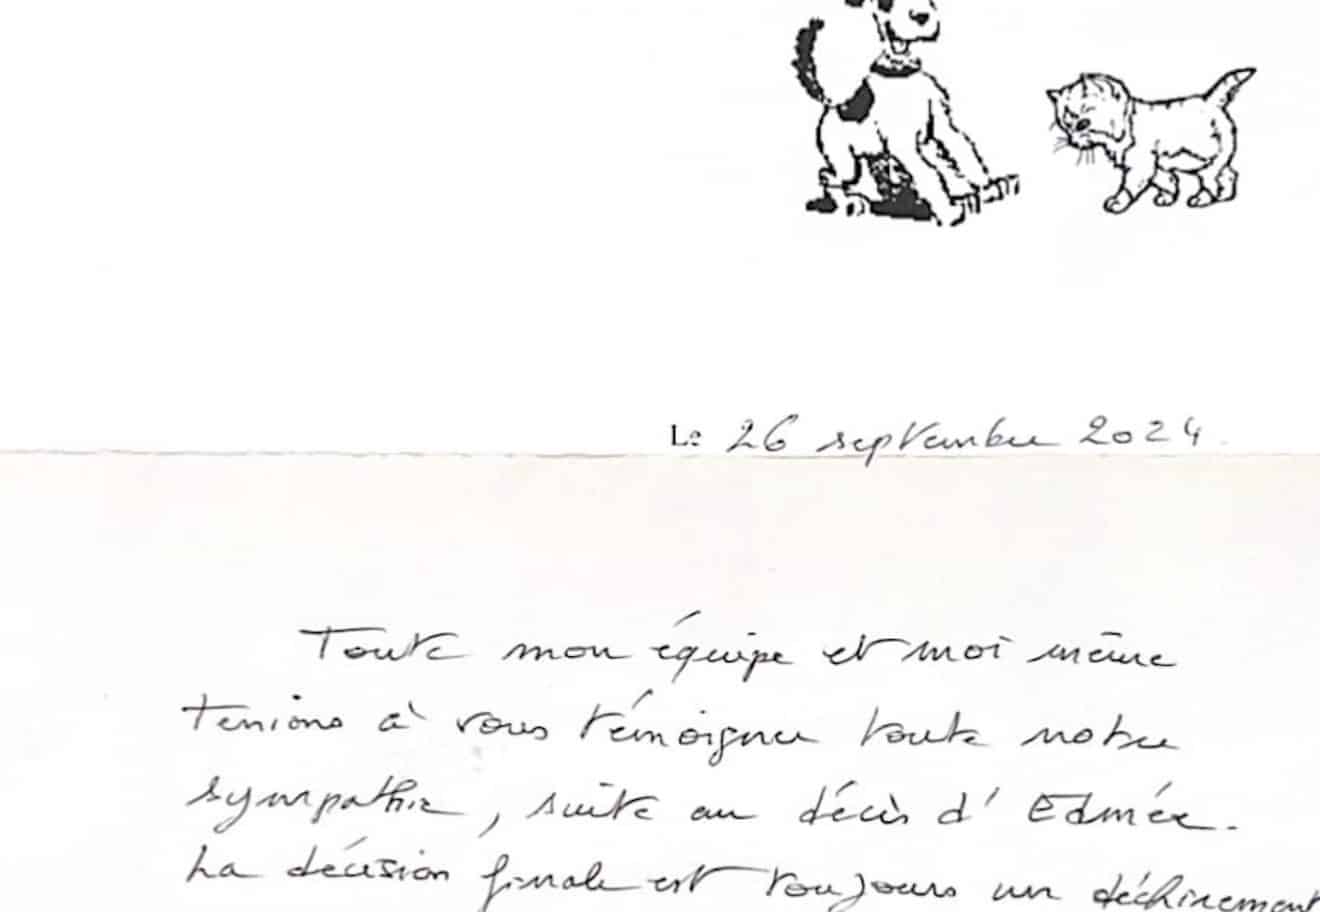 Le 26 septembre 2024.
Toute mon équipe et moi même
tenions à vous témoigner toute notre
sympathie, suite au décès d'Edmée.
La décision finale est toujours un déchirement